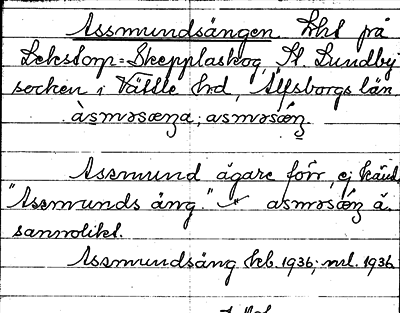 Assmundsängen. Lht på
Lekstorp=Skepplaskog, St. Lundby
socken i Vättle hd, Älfsborgs län
àsmɔsæŋa, asmɔsǽŋ

Assmund ägare förr, ej känd.
"Assmunds äng." asmɔsǽŋ ä.
sannolikt.
Assmundsäng kb. 1936; mtl. 1936